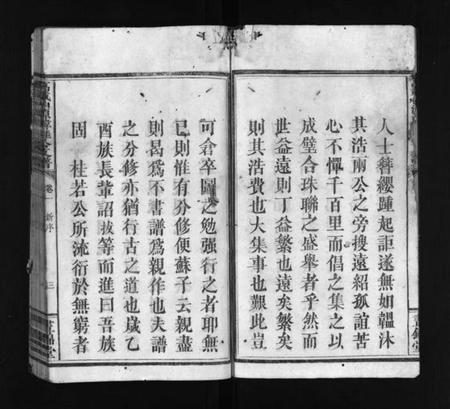 人士簪纓踵起詎遂無如韞沐
其浩兩公之旁搜遠紹孤詣苦
心不憚千百里而倡之集之以
成璧合珠聯之盛舉者乎然而
世益遠則丁益繁也遠矣繁矣
則其浩費也大集事也艱此豈
可倉卒圖之勉強行之者耶無
已則惟有分修便蘇子云親盡
則曷為不書譜為親作也夫譜
之分修亦猶行古之道也歲乙
酉族長輩詔拔等而進曰吾族
固 桂若公所流衍於無窮者
卷一 新序 三